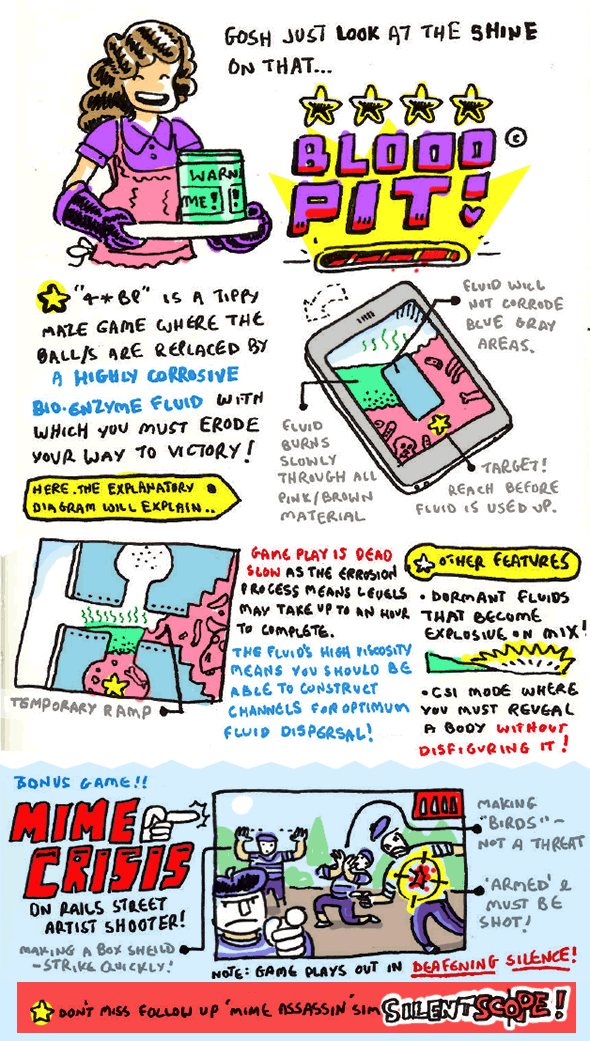 GOSH JUST LOOK AT THE SHINE
ON THAT...
WARN
ME!!
BLOOD
PIT!
©
"4*BP" IS A TIPPY
MAZE GAME WHERE THE
BALL/S ARE REPLACED BY
A HIGHLY CORROSIVE
BIO-ENZYME FLUID WITH
WHICH YOU MUST ERODE
YOUR WAY TO VICTORY!
HERE. THE EXPLANATORY
DIAGRAM WILL EXPLAIN..
FLUID WILL
NOT CORRODE
BLUE GRAY
AREAS.
FLUID
BURNS
SLOWLY
THROUGH ALL
PINK/BROWN
MATERIAL
TARGET!
REACH BEFORE
FLUID IS USED UP.
TEMPORARY RAMP
GAME PLAY IS DEAD
SLOW AS THE ERROSION
PROCESS MEANS LEVELS
MAY TAKE UP TO AN HOUR
TO COMPLETE.
THE FLUID'S HIGH VISCOSITY
MEANS YOU SHOULD BE
ABLE TO CONSTRUCT
CHANNELS FOR OPTIMUM
FLUID DISPERSAL!
OTHER FEATURES
• DORMANT FLUIDS
THAT BECOME
EXPLOSIVE ON MIX!
• CSI MODE WHERE
YOU MUST REVEAL
A BODY WITHOUT
DISFIGURING IT!
BONUS GAME!!
MIME
CRISIS
ON RAILS STREET
ARTIST SHOOTER!
MAKING A BOX SHEILD
- STRIKE QUICKLY!
MAKING
"BIRDS" ~
NOT A THREAT
'ARMED' &
MUST BE
SHOT!
NOTE: GAME PLAYS OUT IN DEAFENING SILENCE!
DON'T MISS FOLLOW UP 'MIME ASSASSIN' SIM SILENTSCOPE!